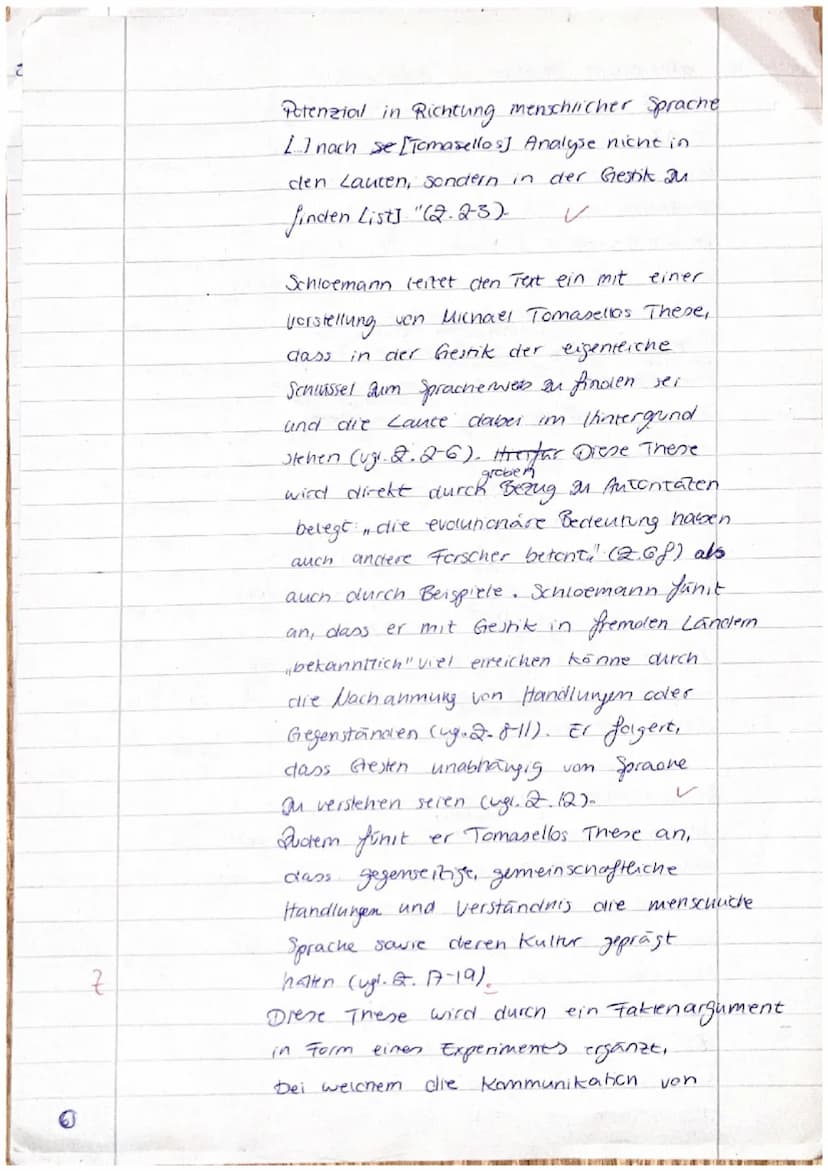 Potenzial in Richtung menschlicher Sprache
[.] nach se [Tomasellos] Analyse nicht in
den Lauten, sondern in der Gestik zu
finden [ist] "(Z. 2-3).
✓
Schloemann leitet den Text ein mit einer
Vorstellung von Michael Tomasellos These,
dass in der Gestik der eigentliche
Schlüssel zum Spracherwerb zu finden sei
und die Laute dabei im Hintergrund
stehen (vgl. Z. 2-6). Hierfür Diese These
groben
wird direkt durch Bezug zu Autoritäten
belegt: „die evolutionäre Bedeutung haben
auch andere Forscher betont." (Z. 6f) als
auch durch Beispiele. Schloemann führt
an, dass er mit Gestik in fremden Ländern
„bekanntlich" viel erreichen könne durch
die Nachahmung von Handlungen oder
Gegenständen (vgl. Z. 8-11). Er folgert,
dass Gesten unabhängig von Sprache
zu verstehen seien (vgl. Z. 12).
✓
Zudem führt er Tomasellos These an,
dass gegenseitige, gemeinschaftliche
Handlungen und Verständnis die menschliche
Sprache sowie deren Kultur geprägt
Z
hätten (vgl. Z. 17-19).
Diese These wird durch ein Faktenargument
in Form eines Experiments ergänzt,
bei welchem die Kommunikation von
6